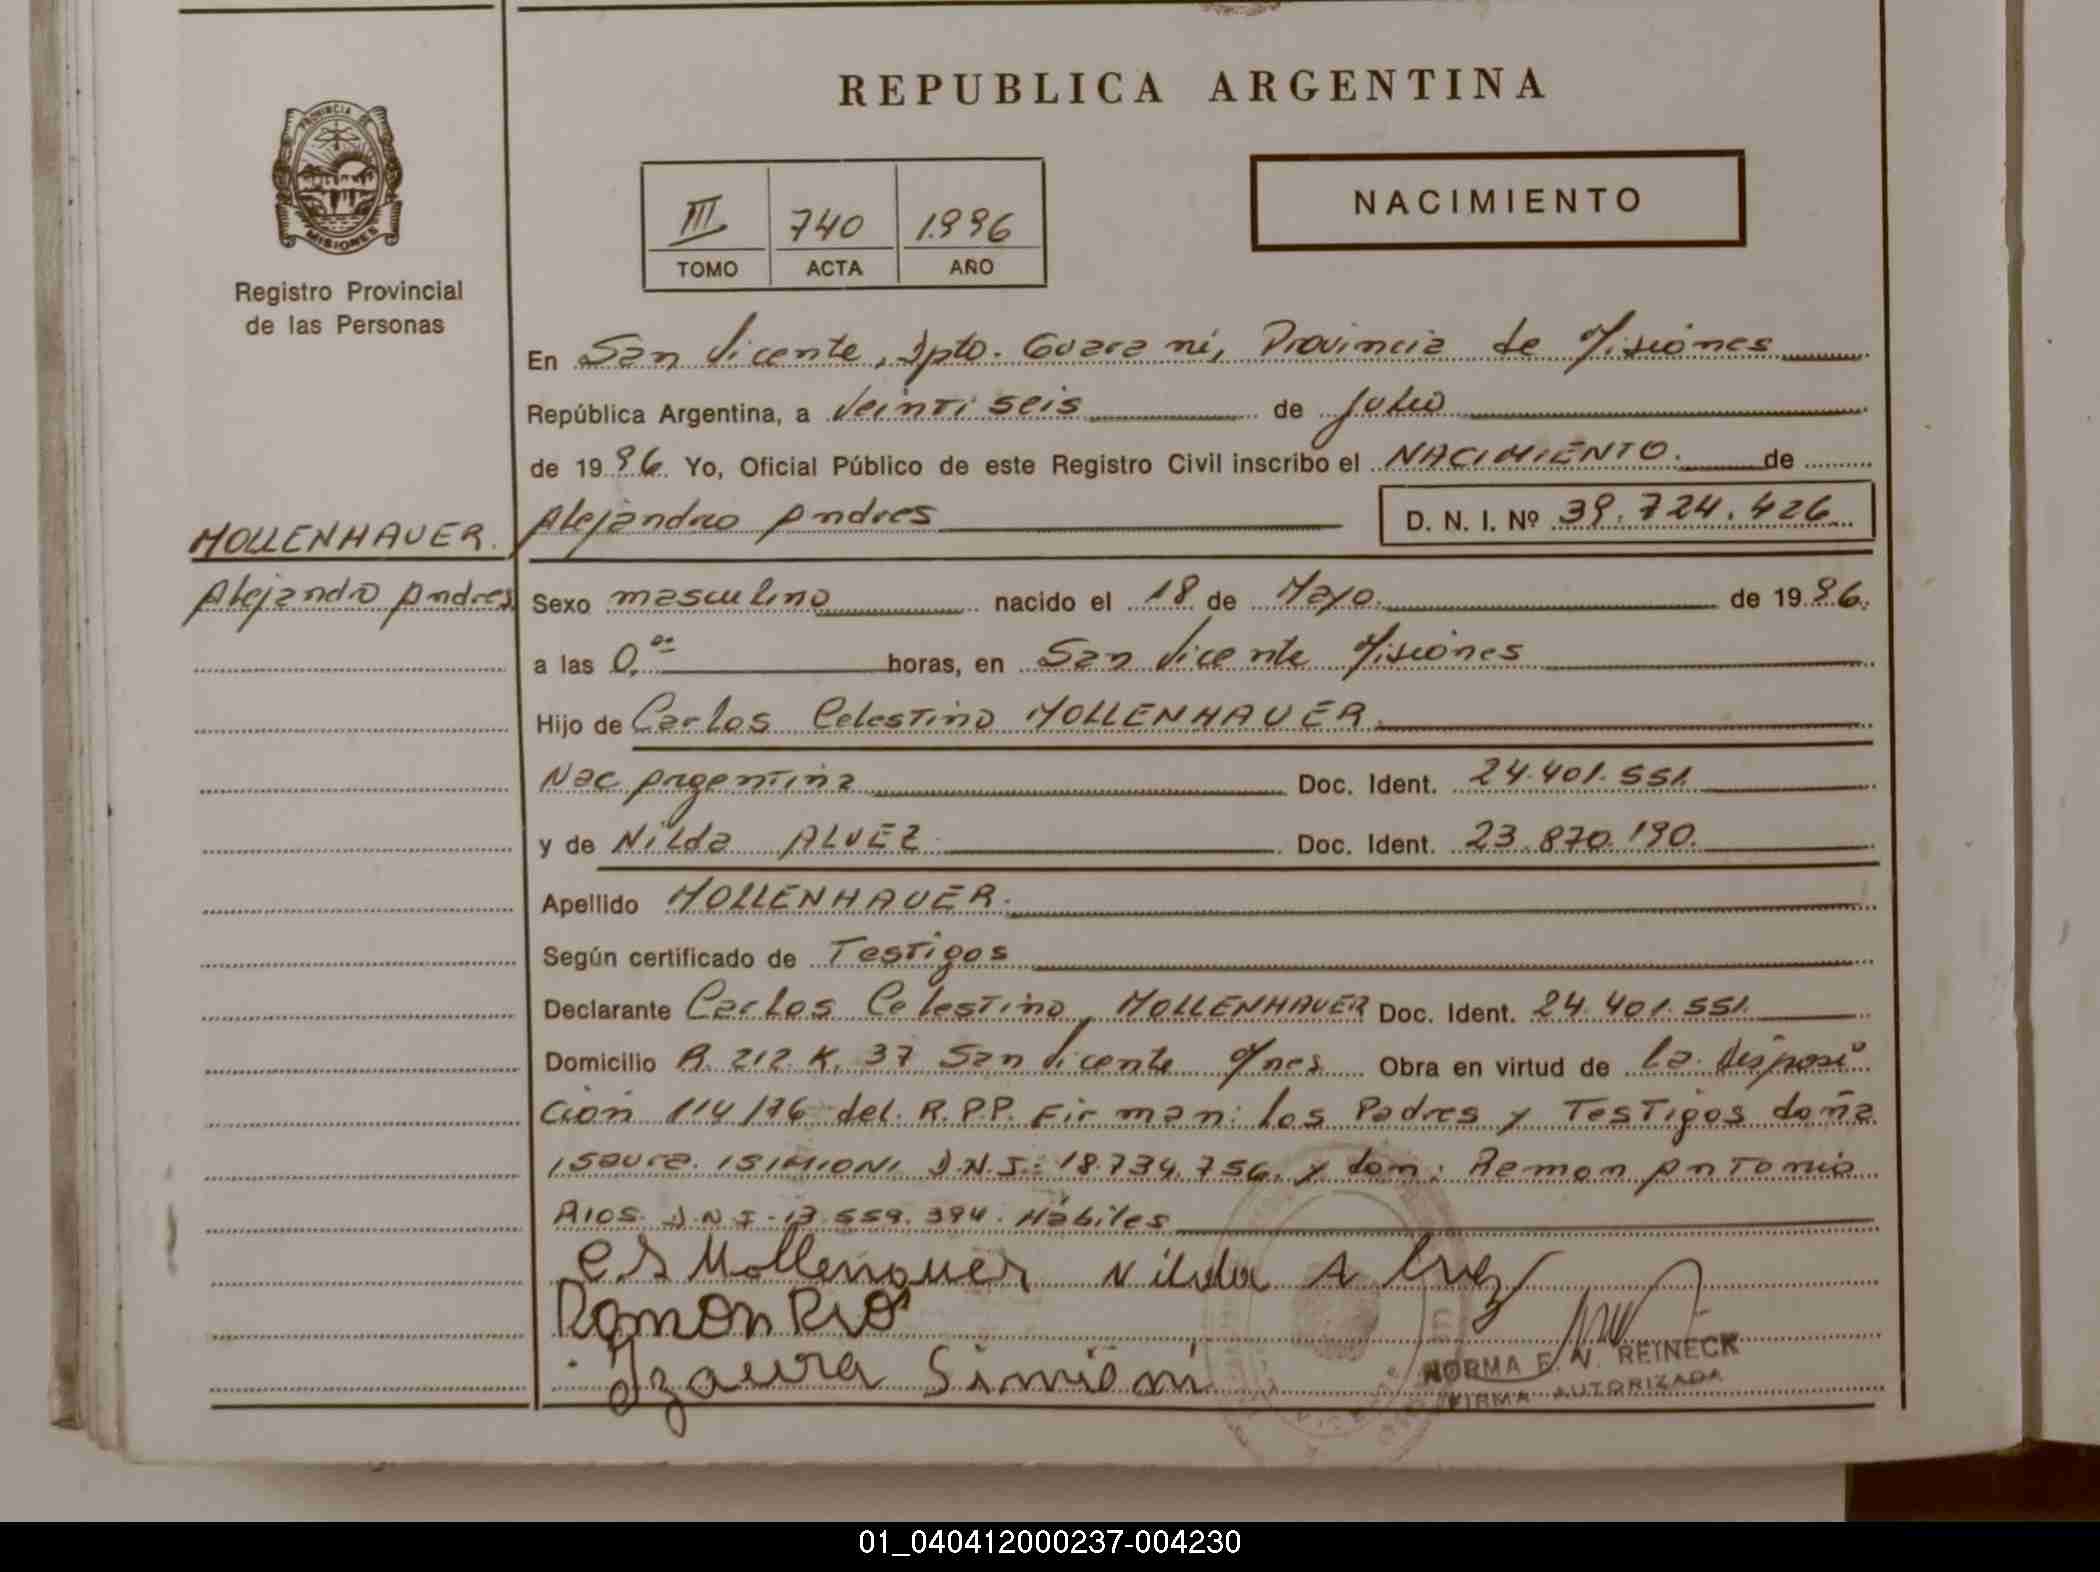 REPUBLICA ARGENTINA
PROVINCIA DE
MISIONES
Registro Provincial
de las Personas
III 740 1.996
TOMO ACTA AÑO
NACIMIENTO
En San Vicente, Dpto. Guarani, Provincia de Misiones
República Argentina, a Veinti seis de Julio
de 1996. Yo, Oficial Público de este Registro Civil inscribo el NACIMIENTO. de
Alejandro Andres D. N. I. Nº 39.724.426
MOLLENHAUER.
Alejandro Andres
Sexo masculino nacido el 18 de Mayo. de 1996.
a las 0,00 horas, en San Vicente Misiones
Hijo de Carlos Celestino MOLLENHAUER.
Nac Argentina Doc. Ident. 24.401.551.
y de Nilda ALVEZ Doc. Ident. 23.870.190.
Apellido MOLLENHAUER.
Según certificado de Testigos
Declarante Carlos Celestino MOLLENHAUER Doc. Ident. 24.401.551.
Domicilio R. 212 K. 37 San Vicente Mnes Obra en virtud de La Disposi
ción 114/76 del R.P.P. Firman: los Padres y Testigos doña
Isaura ISIMIONI D.N.I.: 18.734.756. y don: Ramon Antonio
RIOS. D.N.I. 13.559.394. Hábiles
Mollenauer Nilda Alvez
Ramon Rios
Izaura Simioni
NORMA E. N. REINECK
FIRMA AUTORIZADA
01_040412000237-004230